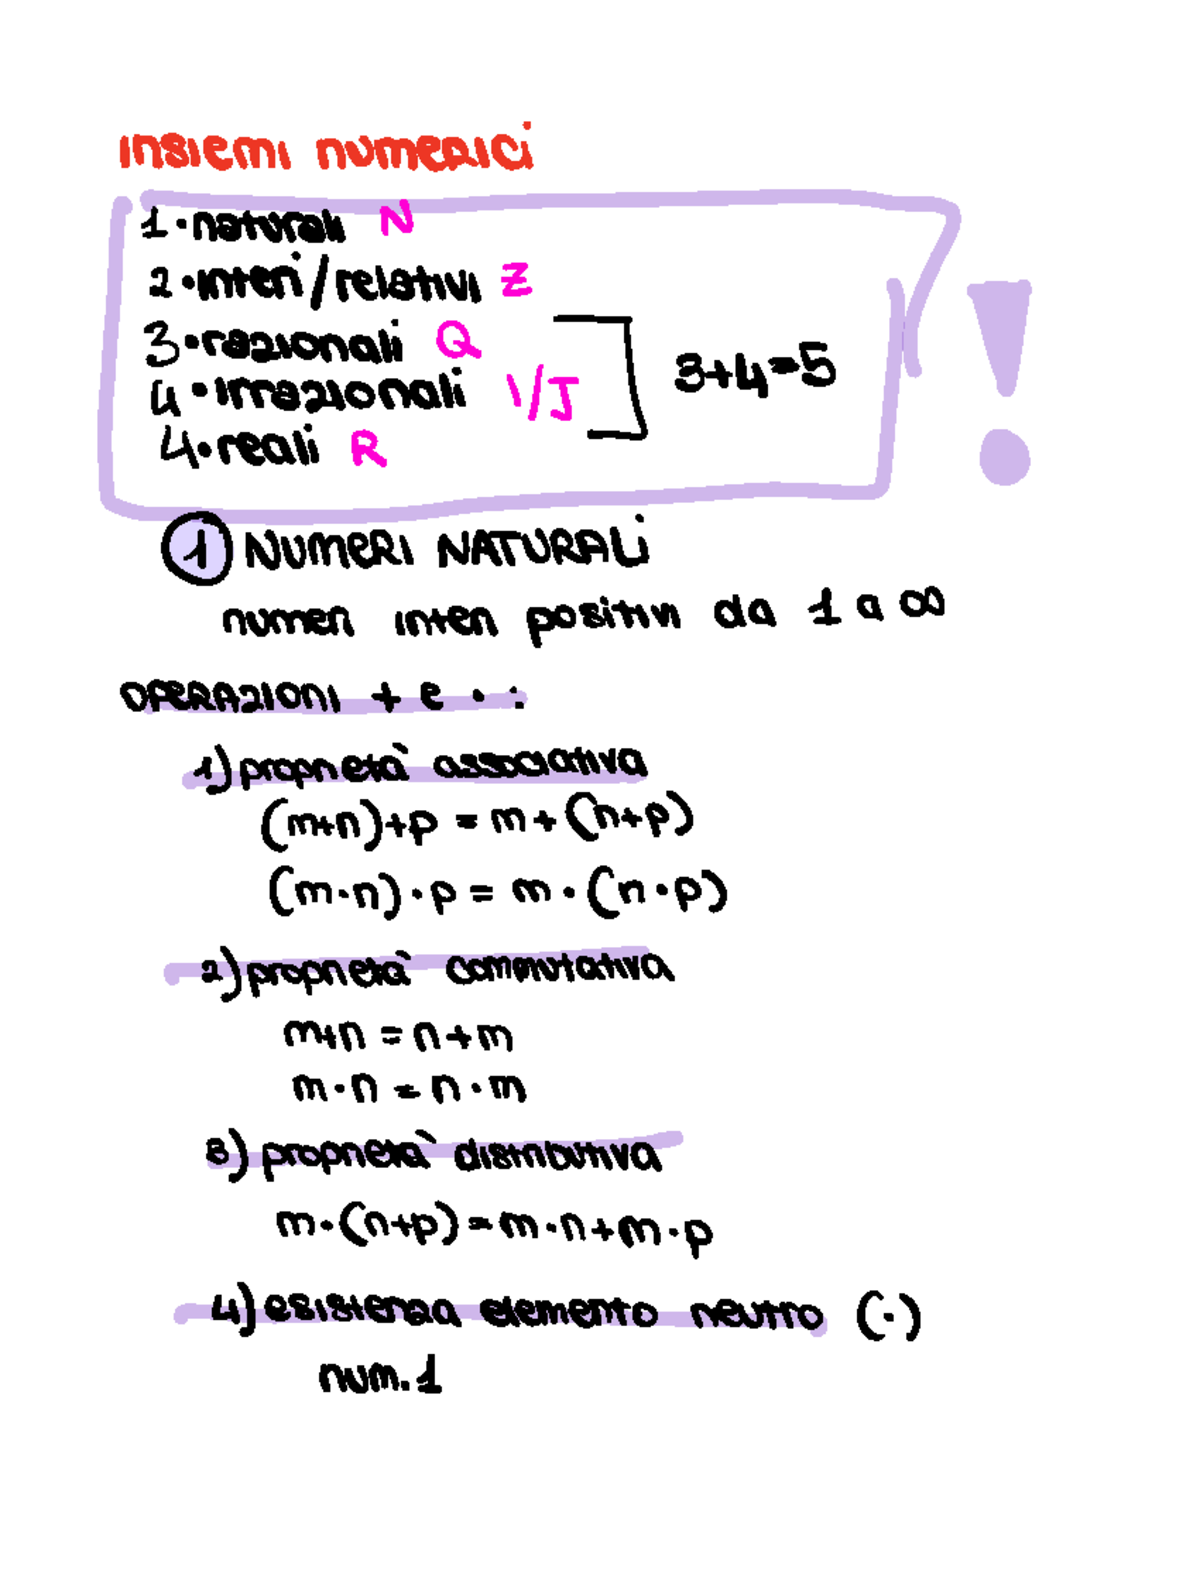 INSIEMI NUMERICI
1•naturali N
2•interi/relativi Z
3•razionali Q
4•irrazionali I/J
3+4=5
4•reali R
1 NUMERI NATURALI
numeri interi positivi da 1 a ∞
OPERAZIONI + e • :
1) proprietà associativa
(m+n)+p = m+(n+p)
(m•n)•p = m•(n•p)
2) proprietà commutativa
m+n = n+m
m•n = n•m
3) proprietà distributiva
m•(n+p)=m•n+m•p
4) esistenza elemento neutro (•)
num.1